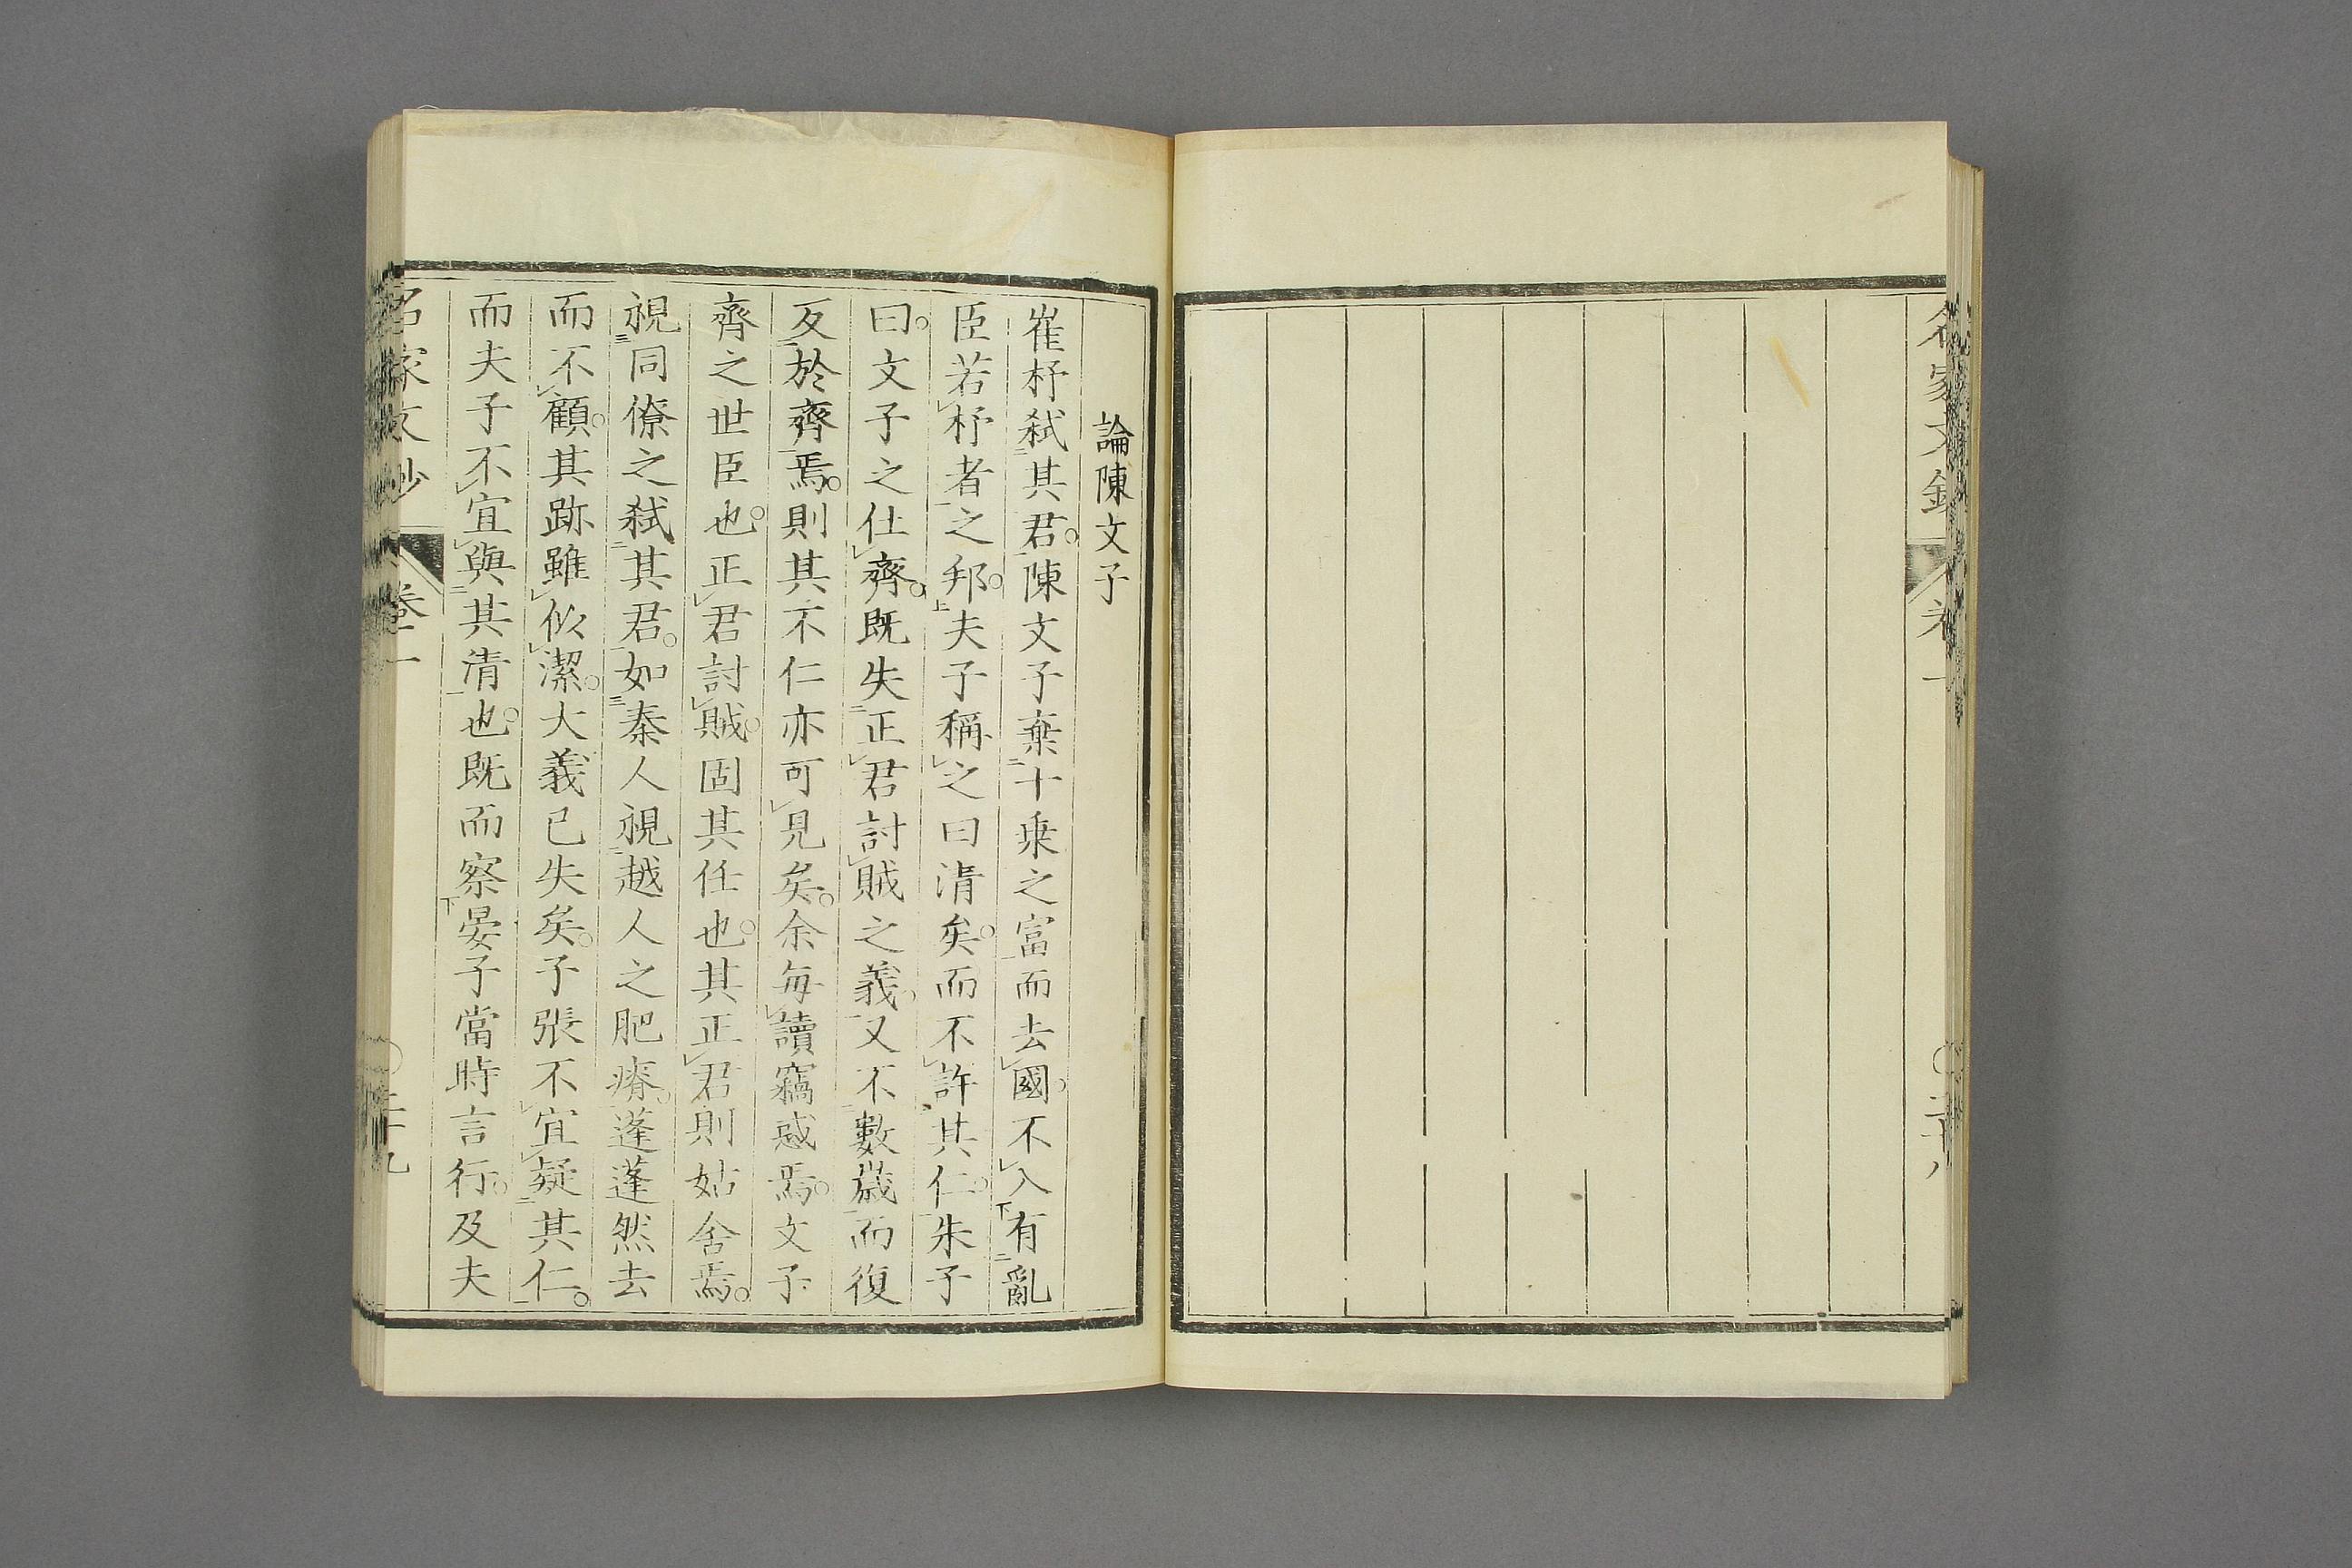 名家文鈔
卷一
二十八
論陳文子
崔杼弑其君陳文子棄十乗之富而去國不入有亂
臣若杼者之邦夫子稱之曰清矣而不許其仁朱子
曰文子之仕齊既失正君討賊之義又不數歲而復
反於齊焉則其不仁亦可見矣余每讀竊惑焉文子
齊之世臣也正君討賊固其任也其正君則姑舍焉
視同僚之弑其君如秦人視越人之肥瘠蓬蓬然去
而不顧其跡雖似潔大義已失矣子張不宜疑其仁
而夫子不宜與其清也既而察晏子當時言行及夫
名家文鈔
卷一
二十九